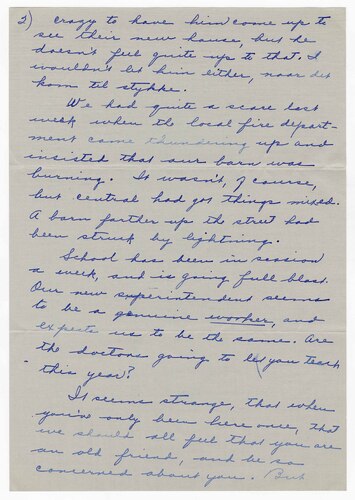 2) crazy to have him come up to
see their new house, but he
doesn't feel quite up to that. I
wouldn't let him either, naar det
kom til stykke.
We had quite a scare last
week when the local fire depart-
ment came thundering up and
insisted that our barn was
burning. It wasn't, of course,
but central had got things mixed.
A barn farther up the street had
been struck by lightning.
School has been in session
a week, and is going full blast.
Our new superintendent seems
to be a genuine worker, and
expects us to be the same. Are
the doctors going to let you teach
this year?
It seems strange, that when
you've only been here once, that
we should all feel that you are
an old friend, and be so
concerned about you. But